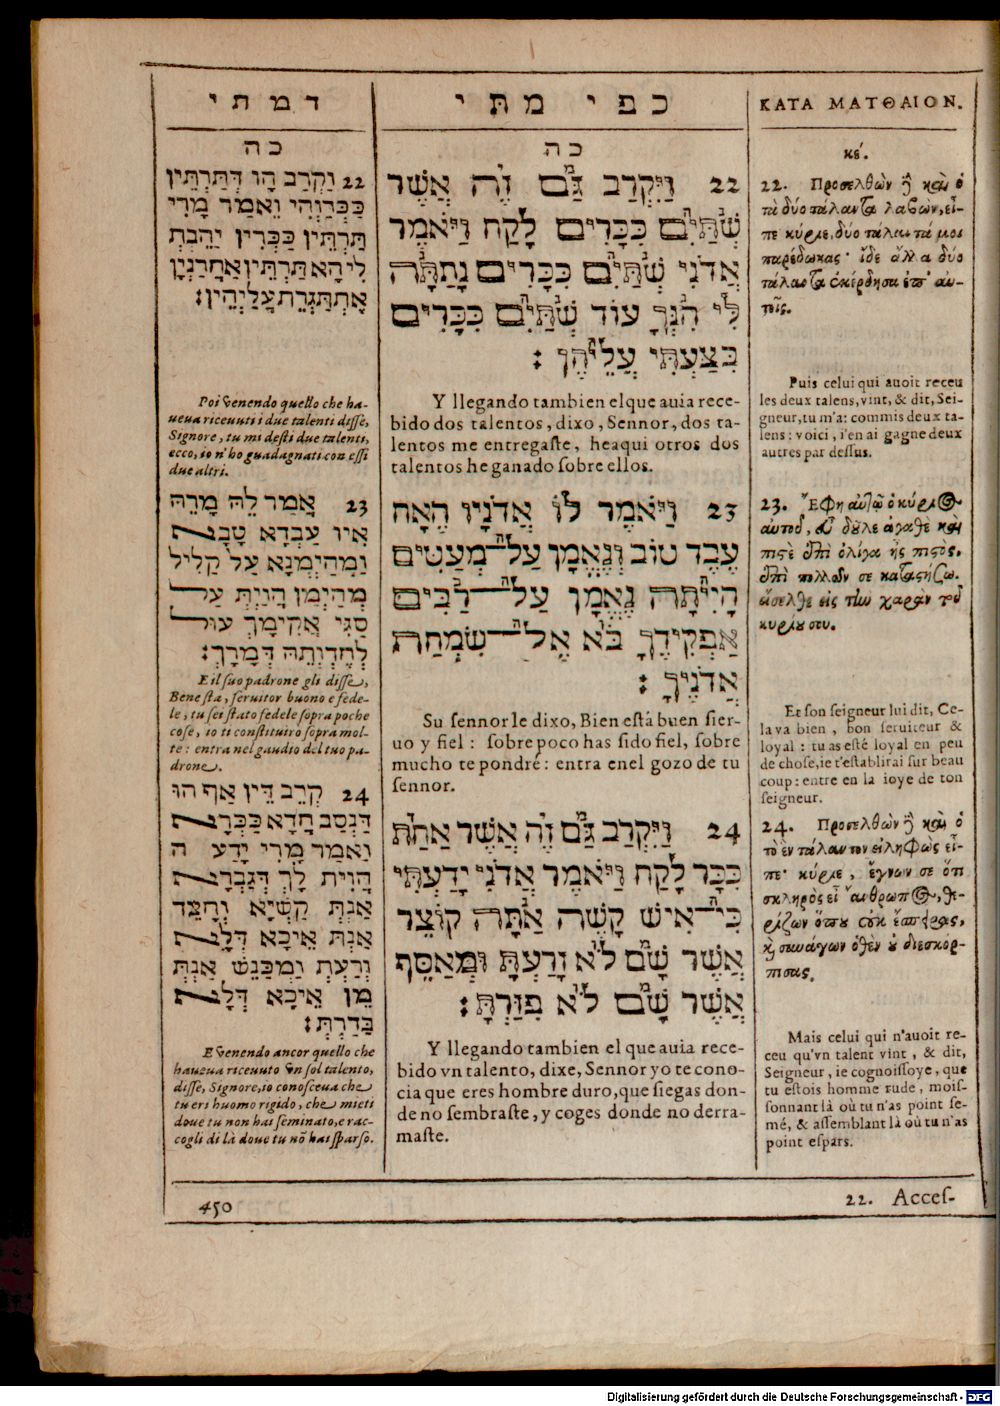 דמתי
כה
22 וַקְרֵב הָו דְּתַרְתֵּין
כַּכְּרַוְהִי וֶאמַר מָרִי
תַּרְתֵּין כַּכְּרִין יַהֲבְתְּ
לִי הָא תַּרְתֵּין אַחֲרַנְיָן
אִתְתַּגְרֵת עֲלַיְהֵין׃
Poi venendo quello che ha-
ueua riceuuti i due talenti disse,
Signore, tu mi desti due talenti,
ecco, io n'ho guadagnati con essi
due altri.
23 אֲמַר לֵהּ מָרֵהּ
אִיו עַבְדָא טָבָא
וַמְהַיְמְנָא עַל קַלִיל
מְהַיְמַן הֲוַיְתְּ עַל
סַגִּי אֲקִימָךְ עוּל
לְחֶדְוְתֵהּ דְּמָרָךְ׃
E il suo padrone gli disse,
Bene sta, seruitor buono e fede-
le, tu sei stato fedele sopra poche
cose, io ti constituirò sopra mol-
te: entra nel gaudio del tuo pa-
drone.
24 קְרֵב דֵּין אַף הוּ
דַּנְסַב חֲדָא כַּכְּרָא
וֶאמַר מָרִי יָדַע ה
הֲוֵית לָךְ דְּגַבְרָא
אַנְתְּ קַשְׁיָא וְחָצֵד
אַנְתְּ אֵיכָא דְּלָא
זְרַעְתְּ וַמְכַנֵּשׁ אַנְתְּ
מֵן אֵיכָא דְּלָא
בַּדַּרְתְּ׃
E venendo ancor quello che
haueua riceuuto vn sol talento,
disse, Signore, io conosceua che
tu eri huomo rigido, che mieti
doue tu non hai seminato, e rac-
cogli di là doue tu nō hai sparso.
450
כפי מתי
כה
22 וַיִּקְרַב גַּם זֶה אֲשֶׁר
שְׁתַּיִם כִּכָּרִים לָקַח וַיֹּאמֶר
אֲדֹנִי שְׁתַּיִם כִּכָּרִים נָתַתָּה
לִי הִנְּךָ עוֹד שְׁתַּיִם כִּכָּרִים
בִּצַּעְתִּי עֲלֵיהֶן׃
Y llegando tambien el que auia rece-
bido dos talentos, dixo, Sennor, dos ta-
lentos me entregaste, heaqui otros dos
talentos he ganado sobre ellos.
23 וַיֹּאמֶר לוֹ אֲדֹנָיו הֶאָח
עֶבֶד טוֹב וְנֶאֱמָן עַל־מְעַטִים
הָיִיתָה נֶאֱמָן עַל־רַבִּים
אַפְקִידֶךָ בֹּא אֶל־שִׂמְחַת
אֲדֹנֶיךָ׃
Su sennor le dixo, Bien está buen sier-
uo y fiel: sobre poco has sido fiel, sobre
mucho te pondré: entra enel gozo de tu
sennor.
24 וַיִּקְרַב גַּם זֶה אֲשֶׁר אַחַת
כִּכָּר לָקַח וַיֹּאמֶר אֲדֹנִי יָדַעְתִּי
כִּי־אִישׁ קָשֶׁה אַתָּה קוֹצֵר
אֲשֶׁר שָׁם לֹא זָרַעְתָּ וּמְאַסֵּף
אֲשֶׁר שָׁם לֹא פִזַּרְתָּ׃
Y llegando tambien el que auia rece-
bido vn talento, dixe, Sennor yo te cono-
cia que eres hombre duro, que siegas don-
de no sembraste, y coges donde no derra-
maste.
ΚΑΤΑ ΜΑΤΘΑΙΟΝ.
κέ.
22. Προσελθὼν ἢ καὶ ὁ
τὰ δύο τάλαντα λαβὼν, εἶ-
πε κύριε, δύο τάλαντά μοι
παρέδωκας· ἴδε ἄλλα δύο
τάλαντα ἐκέρδησα ἐπ' αὐ-
τοῖς.
Puis celui qui auoit receu
les deux talens, vint, & dit, Sei-
gneur, tu m'a: commis deux ta-
lens: voici, i'en ai gagne deux
autres par dessus.
23. Ἔφη αὐτῷ ὁ κύριος
αὐτοῦ, εὖ δοῦλε ἀγαθὲ καὶ
πιστὲ ἐπὶ ὀλίγα ἦς πιστὸς,
ἐπὶ πολλῶν σε καταστήσω.
εἴσελθε εἰς τὴν χαρὰν τοῦ
κυρίου σου.
Et son seigneur lui dit, Ce-
la va bien, bon seruiteur &
loyal: tu as esté loyal en peu
de chose, ie t'establirai sur beau
coup: entre en la ioye de ton
seigneur.
24. Προσελθὼν ἢ καὶ ὁ
τὸ ἓν τάλαντον εἰληφὼς εἶ-
πε· κύριε, ἔγνων σε ὅτι
σκληρὸς εἶ ἄνθρωπος, θε-
ρίζων ὅπου οὐκ ἔσπειρας,
κỳ συνάγων ὅθεν οὐ διεσκόρ-
πισας.
Mais celui qui n'auoit re-
ceu qu'vn talent vint, & dit,
Seigneur, ie cognoissoye, que
tu estois homme rude, mois-
sonnant là où tu n'as point se-
mé, & assemblant là où tu n'as
point espars.
22. Acces-
Digitalisierung gefördert durch die Deutsche Forschungsgemeinschaft - DFG